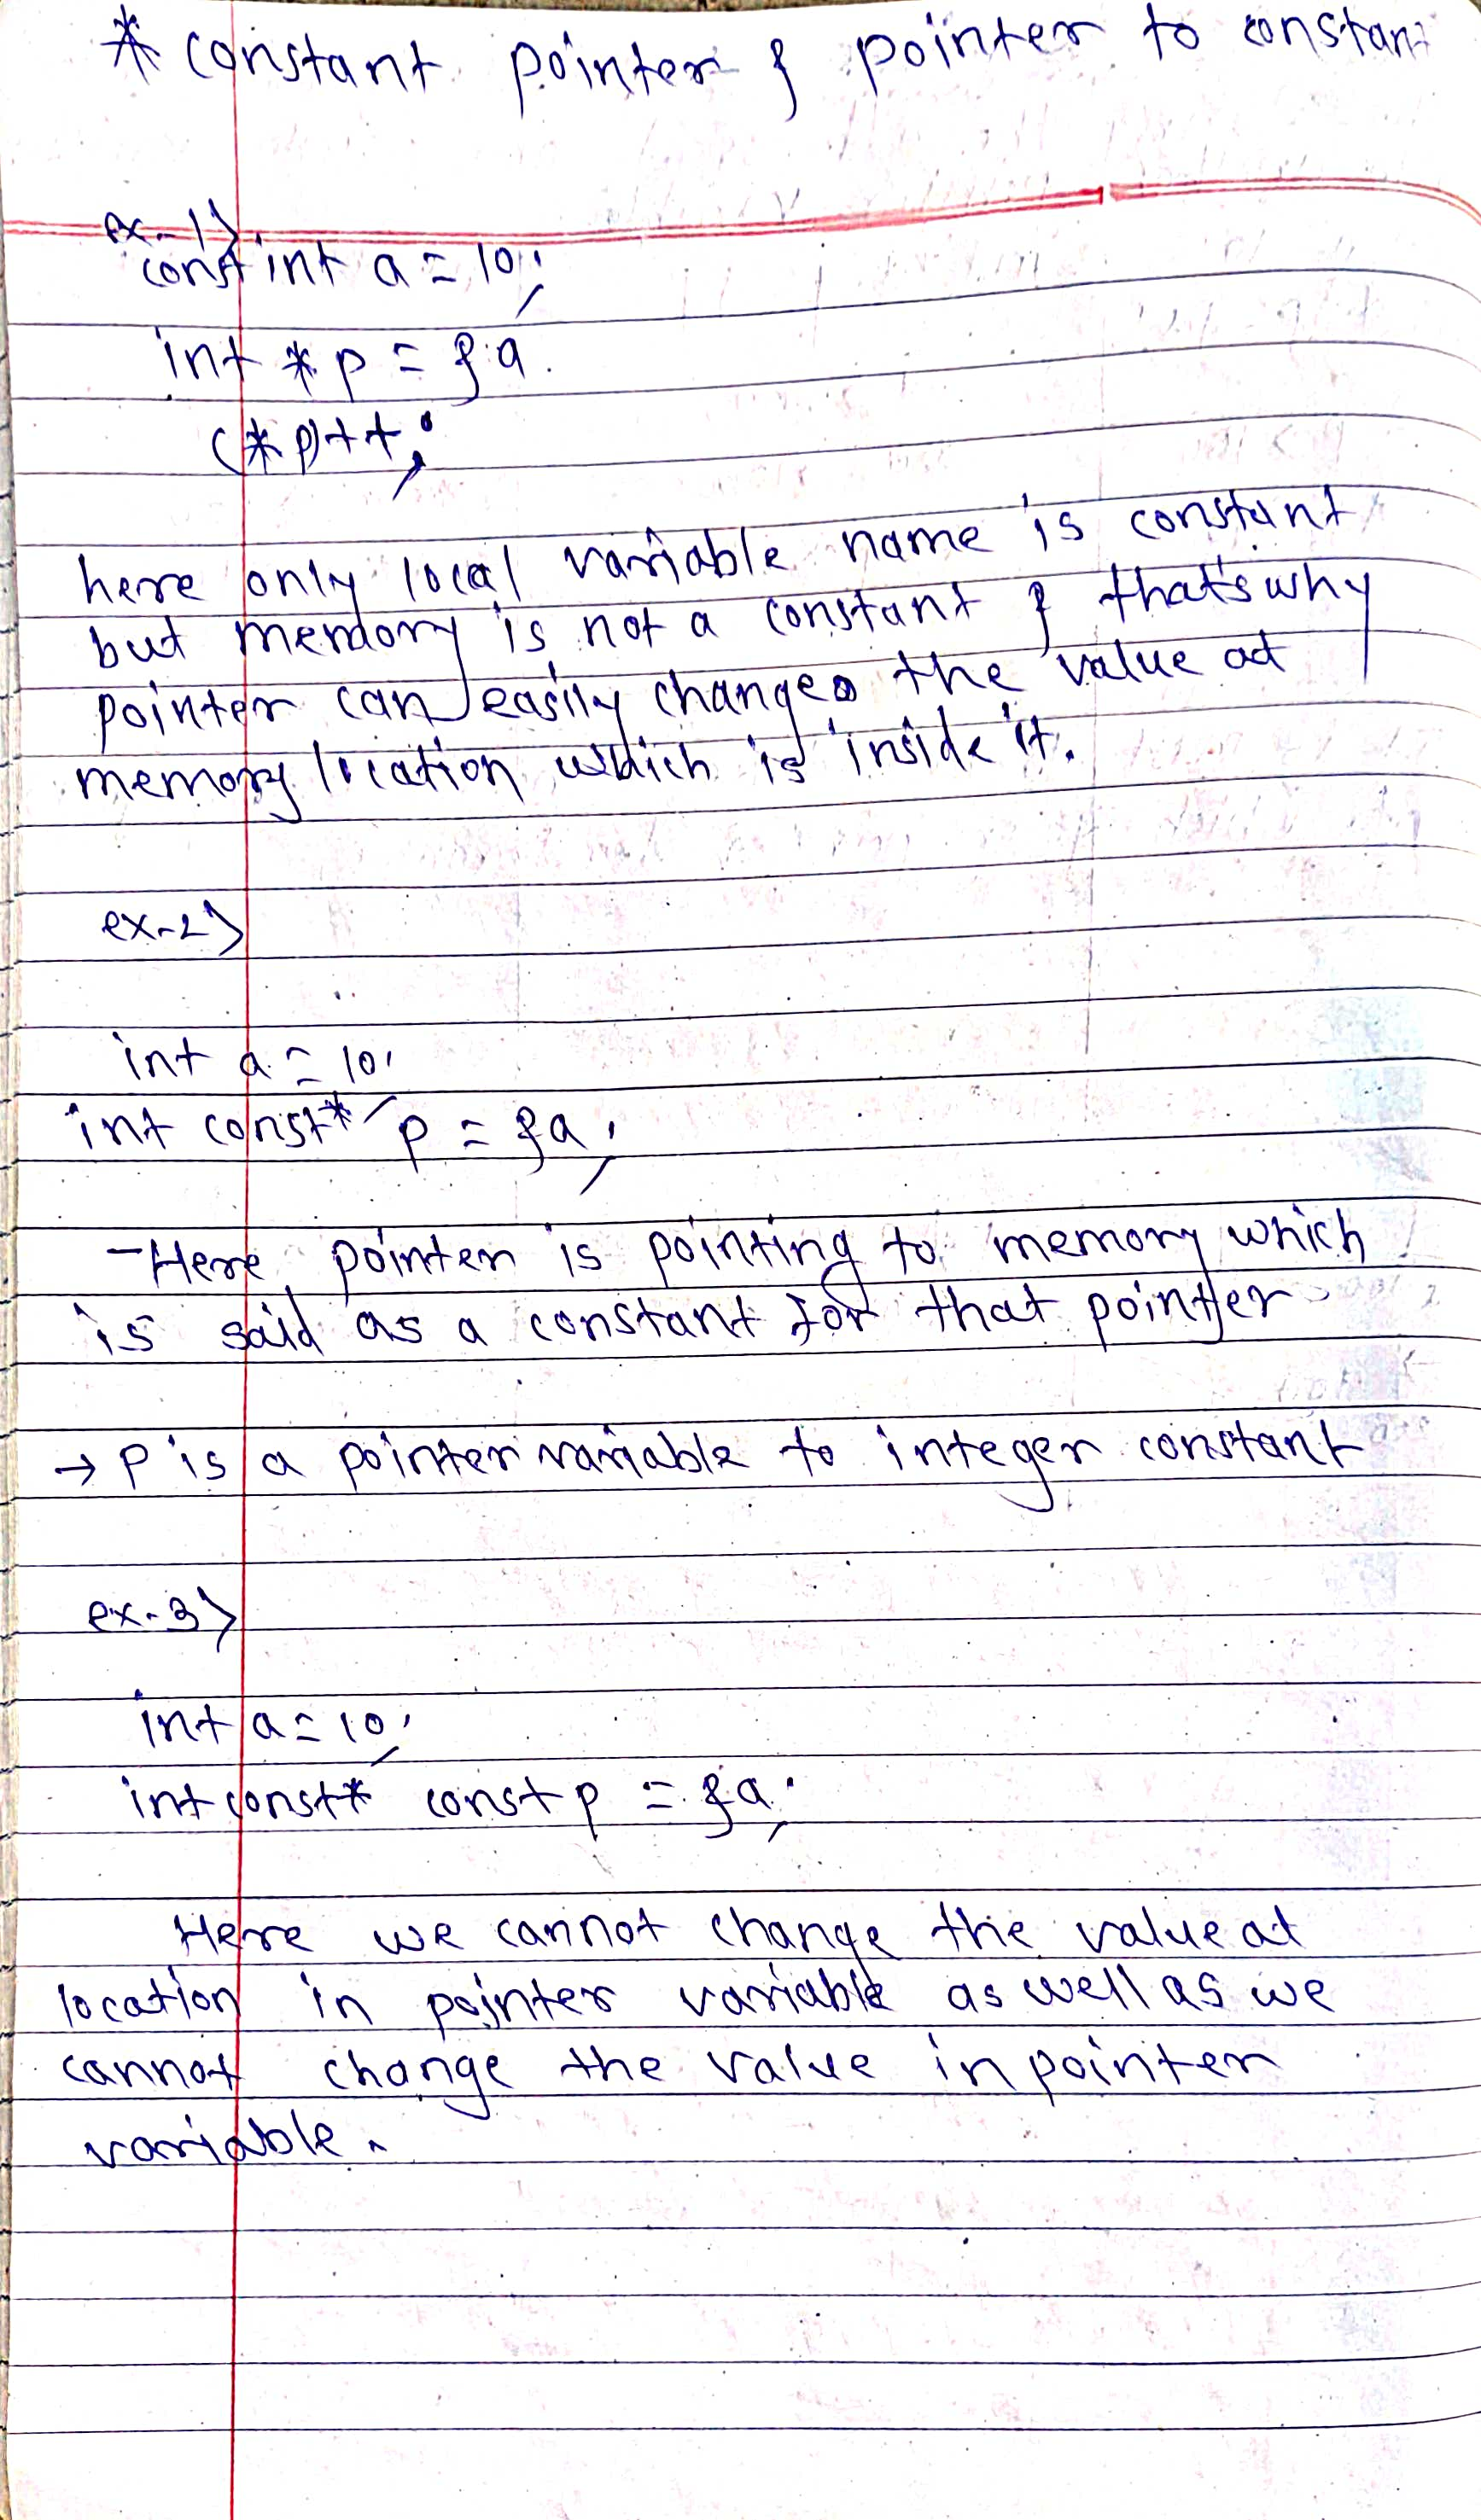 * constant pointer & pointer to constant
ex-1>
const int a = 10;
int *p = &a.
(*p)++;
here only local variable name is constant
but memory is not a constant & that's why
pointer can easily change the value at
memory location which is inside it.
ex-2>
int a = 10;
int const* p = &a;
- Here pointer is pointing to memory which
is said as a constant for that pointer
→ p is a pointer variable to integer constant
ex-3>
int a = 10;
int const* const p = &a;
Here we cannot change the value at
location in pointer variable as well as we
cannot change the value in pointer
variable.